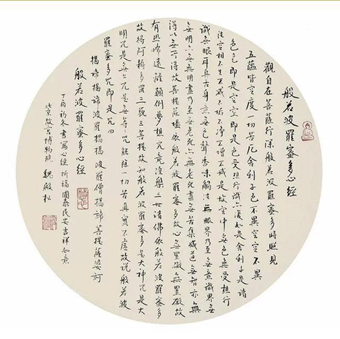 般若波羅蜜多心經
觀自在菩薩行深般若波羅蜜多時照見
五蘊皆空度一切苦厄舍利子色不異空空不異
色色即是空空即是色受想行識亦復如是舍利子是諸
法空相不生不滅不垢不淨不增不減是故空中無色無受想行
識無眼耳鼻舌身意無色聲香味觸法無眼界乃至無意識界無
無明亦無無明盡乃至無老死亦無老死盡無苦集滅道無智亦無
得以無所得故菩提薩埵依般若波羅蜜多故心無罣礙無罣礙故
無有恐怖遠離顛倒夢想究竟涅槃三世諸佛依般若波羅蜜多
故得阿耨多羅三藐三菩提故知般若波羅蜜多是大神咒是大
明咒是無上咒是無等等咒能除一切苦真實不虛故說般若波
羅蜜多咒即說咒曰
揭諦揭諦波羅揭諦波羅僧揭諦菩提薩婆訶
般若波羅蜜多心經
丁酉初冬書寫心經祈福國泰民安吉祥如意
北京故宮博物院 魏殿松